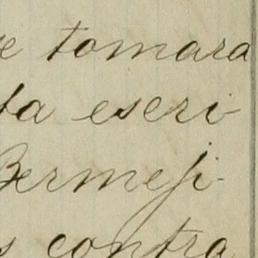 se tomara
ta escri
Bermeji-
s contra